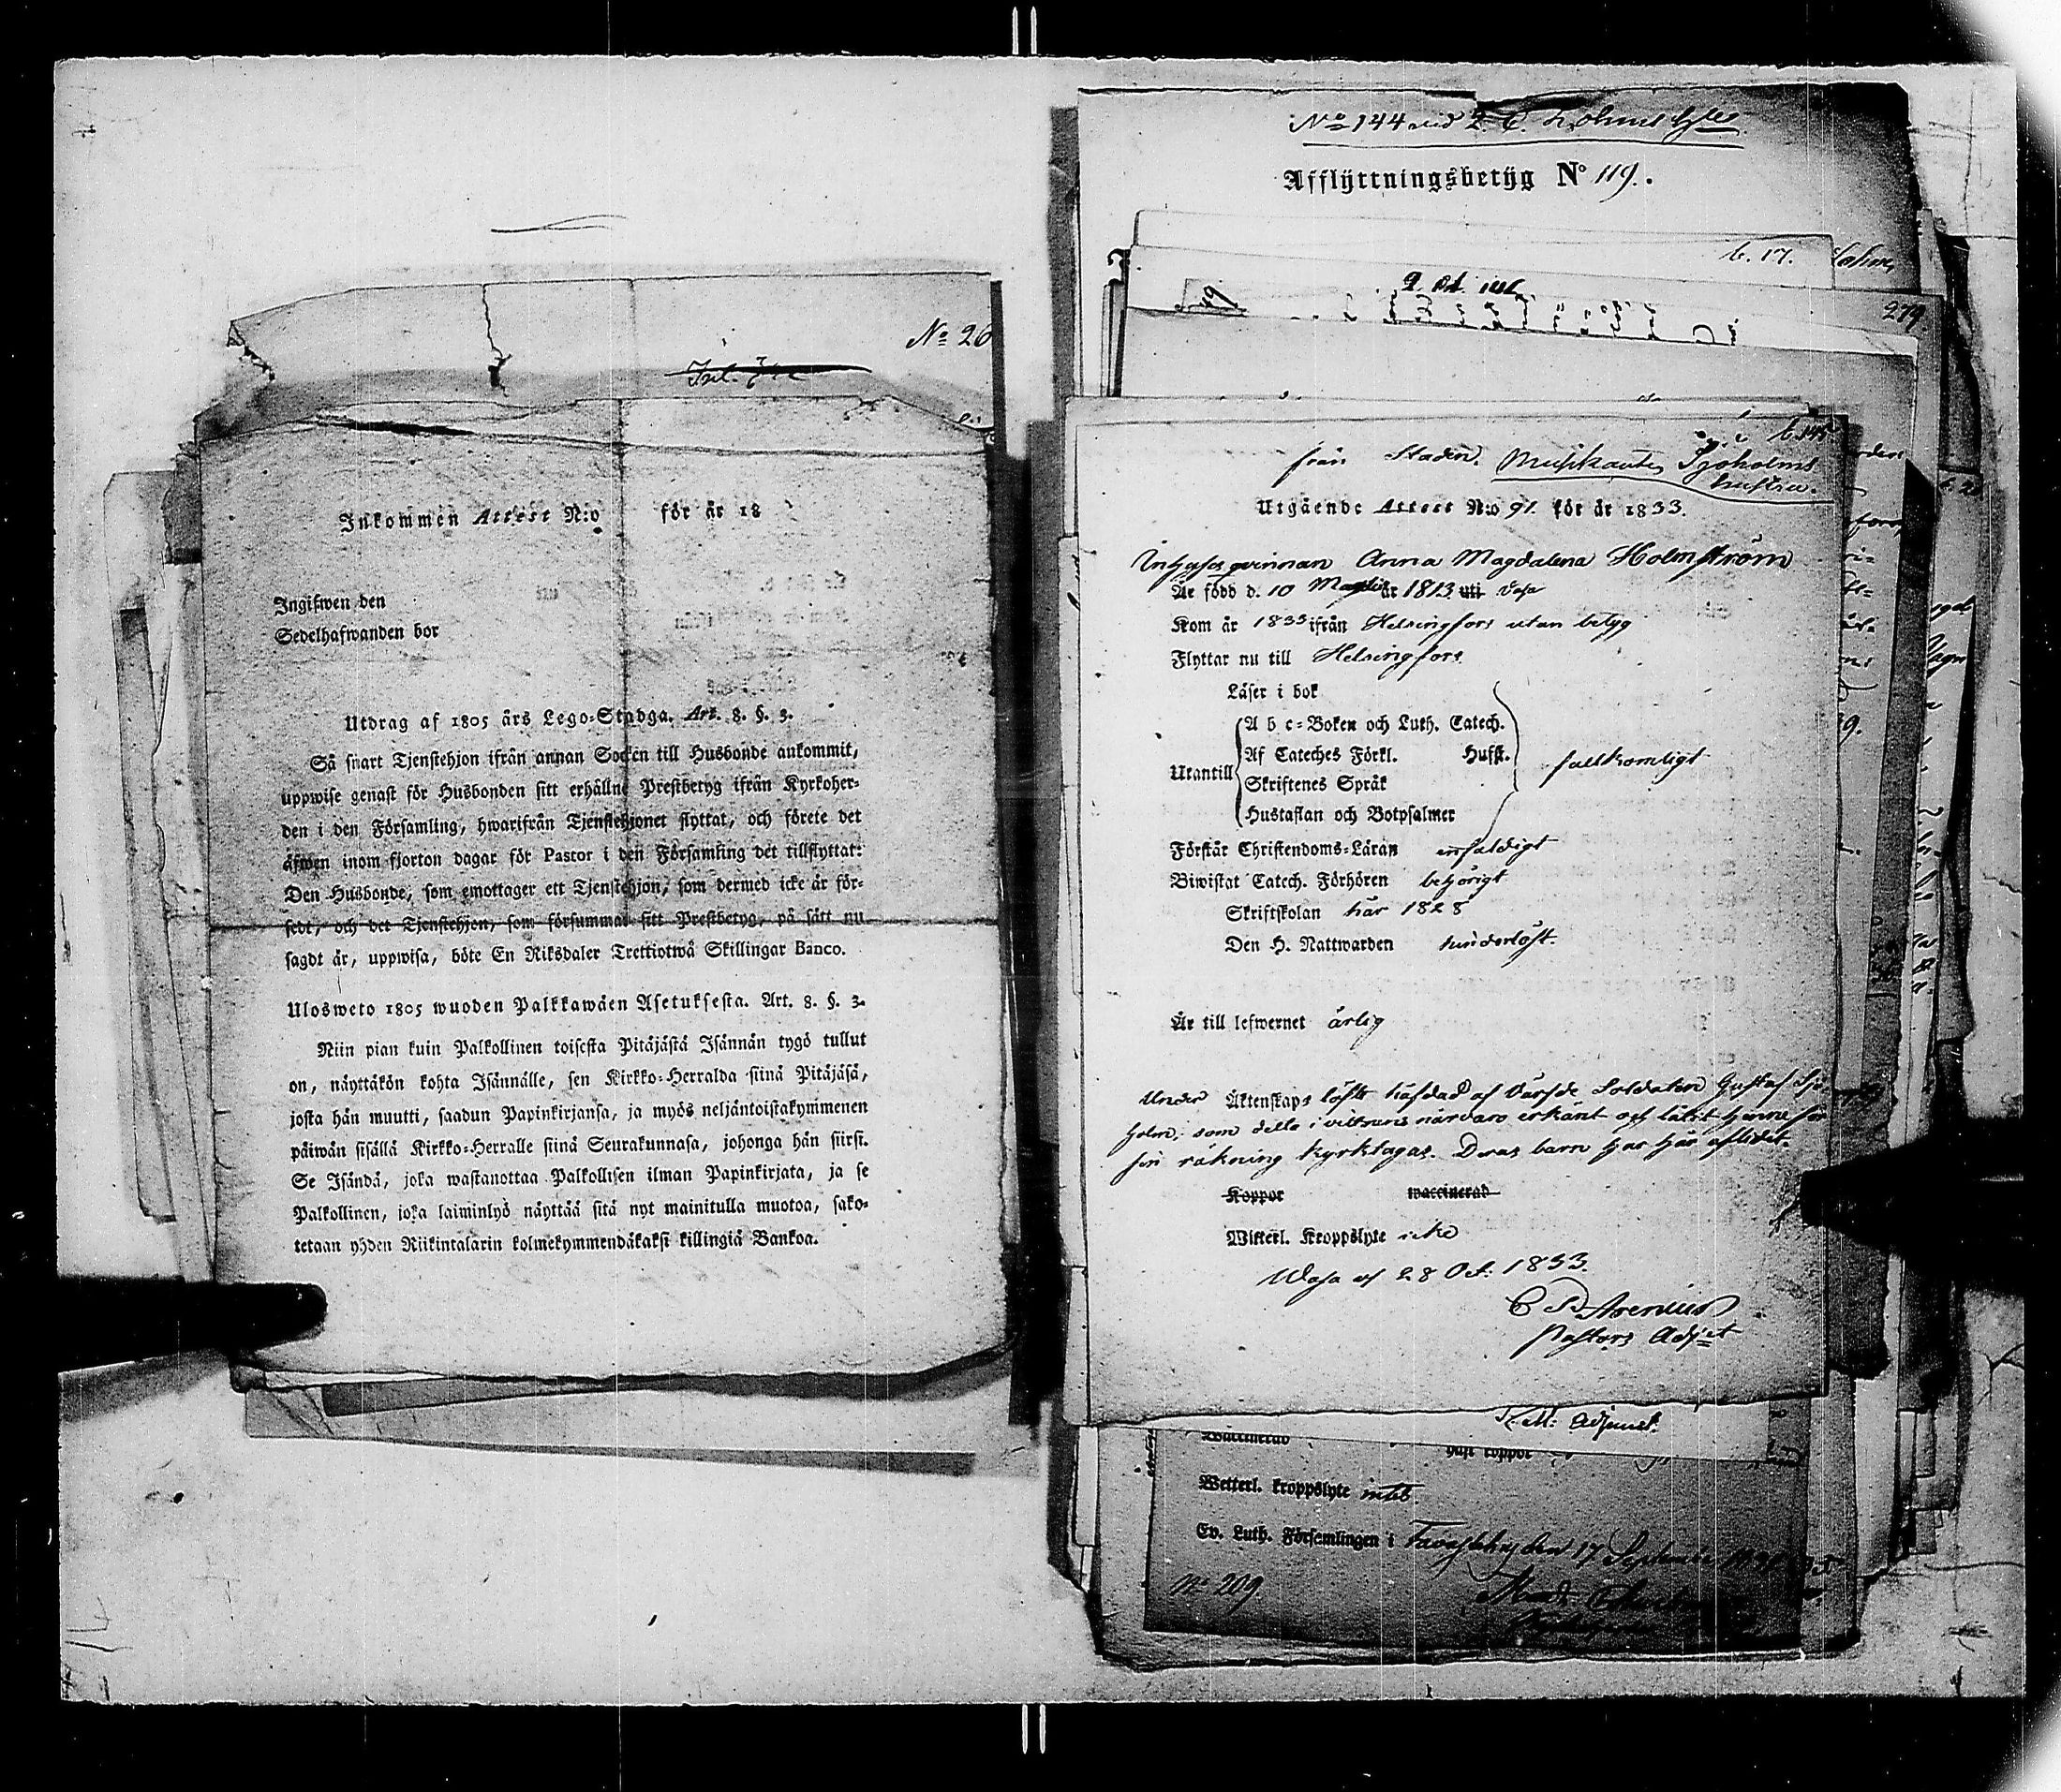 No 26
Inkommen Attest N:o för år 18
Ingifwen den
Sedelhafwanden bor
Utdrag af 1805 års Lego-Stadga. Art. 8. §. 3.
Så snart Tjenstehjon ifrån annan Socken till Husbonde ankommit,
uppwise genast för Husbonden sitt erhållne Prestbetyg ifrån Kyrkoher-
den i den Församling, hwarifrån Tjenstehjonet flyttat, och förete det
äfwen inom fjorton dagar för Pastor i den Församling det tillflyttat:
Den Husbonde, som emottager ett Tjenstehjon, som dermed icke är för-
sedt, och det Tjenstehjon, som försummar sitt Prestbetyg, på sätt nu
sagdt är, uppwisa, böte En Riksdaler Trettiotwå Skillingar Banco.
Ulosweto 1805 wuoden Palkkawäen Asetuksesta. Art. 8. §. 3.
Niin pian kuin Palkollinen toisesta Pitäjästä Isännän tygö tullut
on, näyttäkön kohta Isännälle, sen Kirkko-Herralda siinä Pitäjäsä,
josta hän muutti, saadun Papinkirjansa, ja myös neljäntoistakymmenen
päiwän sisällä Kirkko-Herralle siinä Seurakunnasa, johonga hän siirsi.
Se Isändä, joka wastanottaa Palkollisen ilman Papinkirjata, ja se
Palkollinen, joka laiminlyö näyttää sitä nyt mainitulla muotoa, sako-
tetaan yhden Riikintalarin kolmekymmendäkaksi killingiä Bankoa.
No 144 vid
Afflyttningsbetyg No 119.
b. 17.
279
från Staden. Musikanten Sjöholms
hustru.
Utgående Attest N:o 91. för år 1833.
Inhyses qvinnan Anna Magdalena Holmström
Är född d. 10 år 1813 uti Vasa
Kom år 1833 ifrån Helsingfors utan betyg
Flyttar nu till Helsingfors
Läser i bok
Utantill
A b c-Boken och Luth. Catech.
Af Cateches Förkl. Hufst.
Skriftenes Språk
Hustaflan och Botpsalmer
fullkomligt
Förstår Christendoms-Läran enfaldigt
Biwistat Catech. Förhören behörigt
Skriftskolan här 1828
Den H. Nattwarden hinderlöst.
Är till lefwernet ärlig
Under Äktenskaps löfte häfdad af Värfde Soldaten Gustaf Sjö-
holm, som detta i vittnens närvaro erkänt och låtit henne för
sin räkning kyrktagas. Deras barn har här aflidit.
Koppor waccinerad
Witterl. Kroppslyte icke
Wasa d 28 Oct: 1833.
Pastors Adjct
Adjunct.
Waccinerad haft koppor
Wetterl. kroppslyte intet
Ev. Luth. Församlingen i Tavastehus den 17 September
No 209.